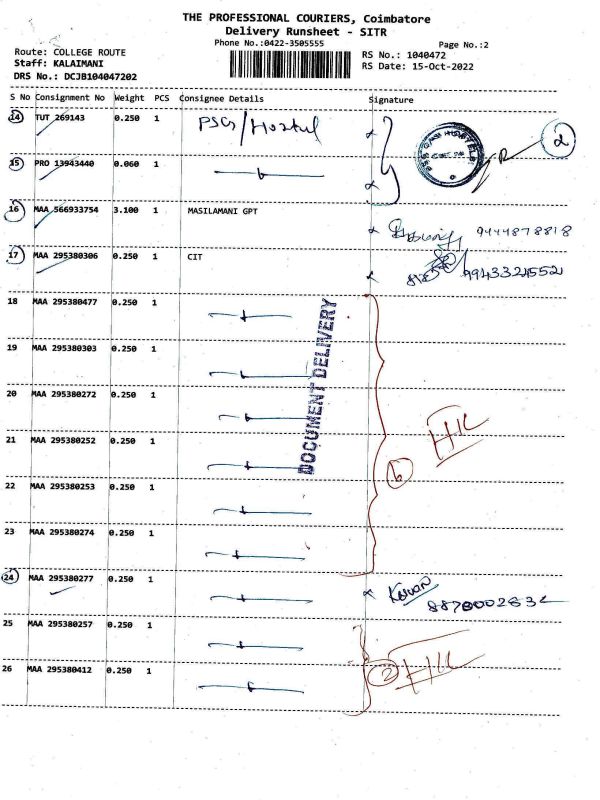 THE PROFESSIONAL COURIERS, Coimbatore
Delivery Runsheet - SITR
Phone No.:0422-3505555
Page No.:2
Route: COLLEGE ROUTE
RS No.: 1040472
Staff: KALAIMANI
RS Date: 15-Oct-2022
DRS No.: DCJB104047202
S No Consignment No Weight PCS Consignee Details Signature
14 TUT 269143 0.250 1 PSG/Hostel
2
15 PRO 13943440 0.060 1
16 MAA 566933754 3.100 1 MASILAMANI GPT
9444878818
17 MAA 295380306 0.250 1 CIT
9943321552
18 MAA 295380477 0.250 1
DOCUMENT DELIVERY
19 MAA 295380303 0.250 1
20 MAA 295380272 0.250 1
21 MAA 295380252 0.250 1
6
22 MAA 295380253 0.250 1
23 MAA 295380274 0.250 1
24 MAA 295380277 0.250 1
25 MAA 295380257 0.250 1
26 MAA 295380412 0.250 1
2